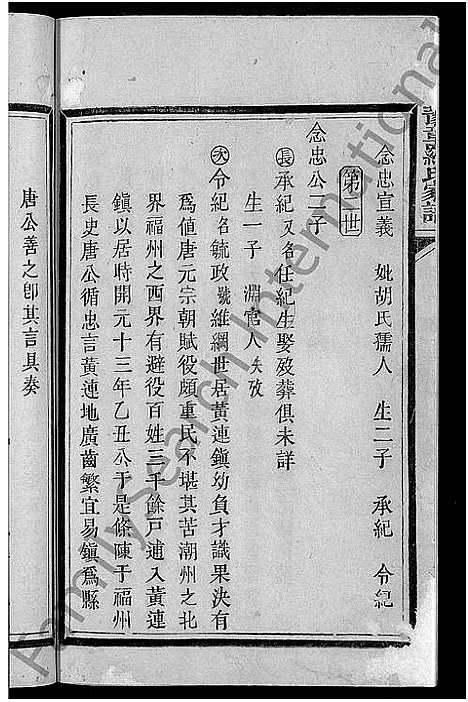 豫章羅氏家譜
念忠宣義 妣胡氏孺人 生二子 承紀 令紀
第二世
念忠公二子
長承紀又名任紀生娶歿葬俱未詳
生一子 淵官人失攷
次令紀名毓政號維綱世居黃連鎮幼負才識果決有
為值唐元宗朝賦役頗重民不堪其苦潮州之北
界福州之西界有避役百姓三千餘戶逋入黃連
鎮以居時開元十三年乙丑公于是條陳于福州
長史唐公循忠言黃蓮地廣齒繁宜易鎮為縣
唐公善之卽其言具奏
FamilySearch International